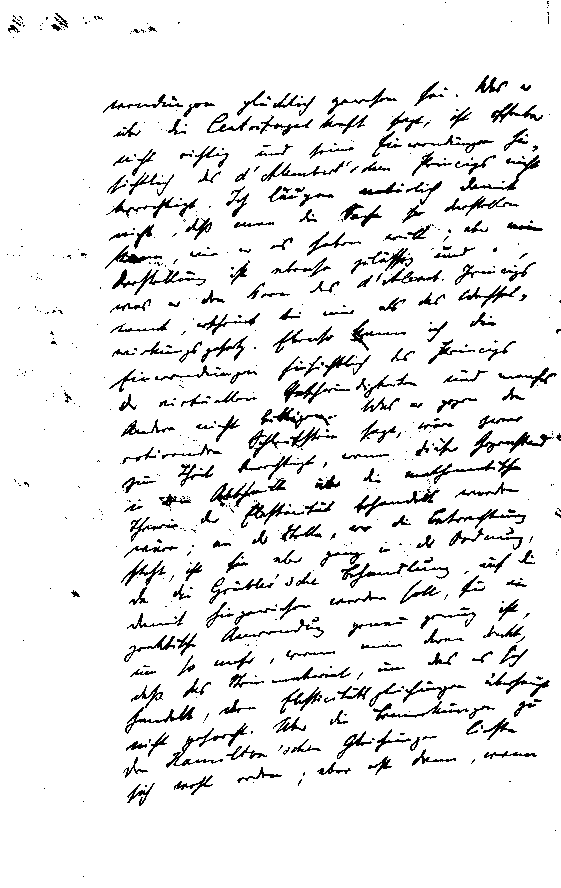 wendungen glücklich gewesen sei. Was er
über die Centrifugalkraft sagt, ist offenbar
nicht richtig und seine Einwendungen hin-
sichtlich des d'Alembert'schen Princips nicht
berechtigt. Ich läugne natürlich damit
nicht, daß man die Sache so darstellen
kann, wie er es haben will; aber meine
Darstellung ist ebenso zulässig und
was er den Kern des d'Alemb. Princips
nennt, erscheint bei mir als das Wechsel-
wirkungsgesetz. Ebenso kann ich die
Einwendungen hinsichtlich des Princips
der virtuellen Geschwindigkeiten und manches
Andere nicht billigen. Was er gegen den
rotirenden Schleifstein sagt, wäre zwar
zum Theil berechtigt, wenn dieser Gegenstand
in dem Abschnitt über die mathematische
Theorie der Elasticität behandelt worden
wäre; an der Stelle, wo die Betrachtung
steht, ist sie aber ganz in der Ordnung,
da die Grübler'sche Behandlung, auf die
damit hingewiesen werden soll, für die
praktische Anwendung genau genug ist,
um so mehr, wenn man daran denkt,
daß das Steinmaterial, um das es sich
handelt, den Elasticitätsgleichungen überhaupt
nicht gehorcht. Über die Bemerkungen zu
den Hamilton'schen Gleichungen ließe
sich wohl reden; aber erst dann, wenn